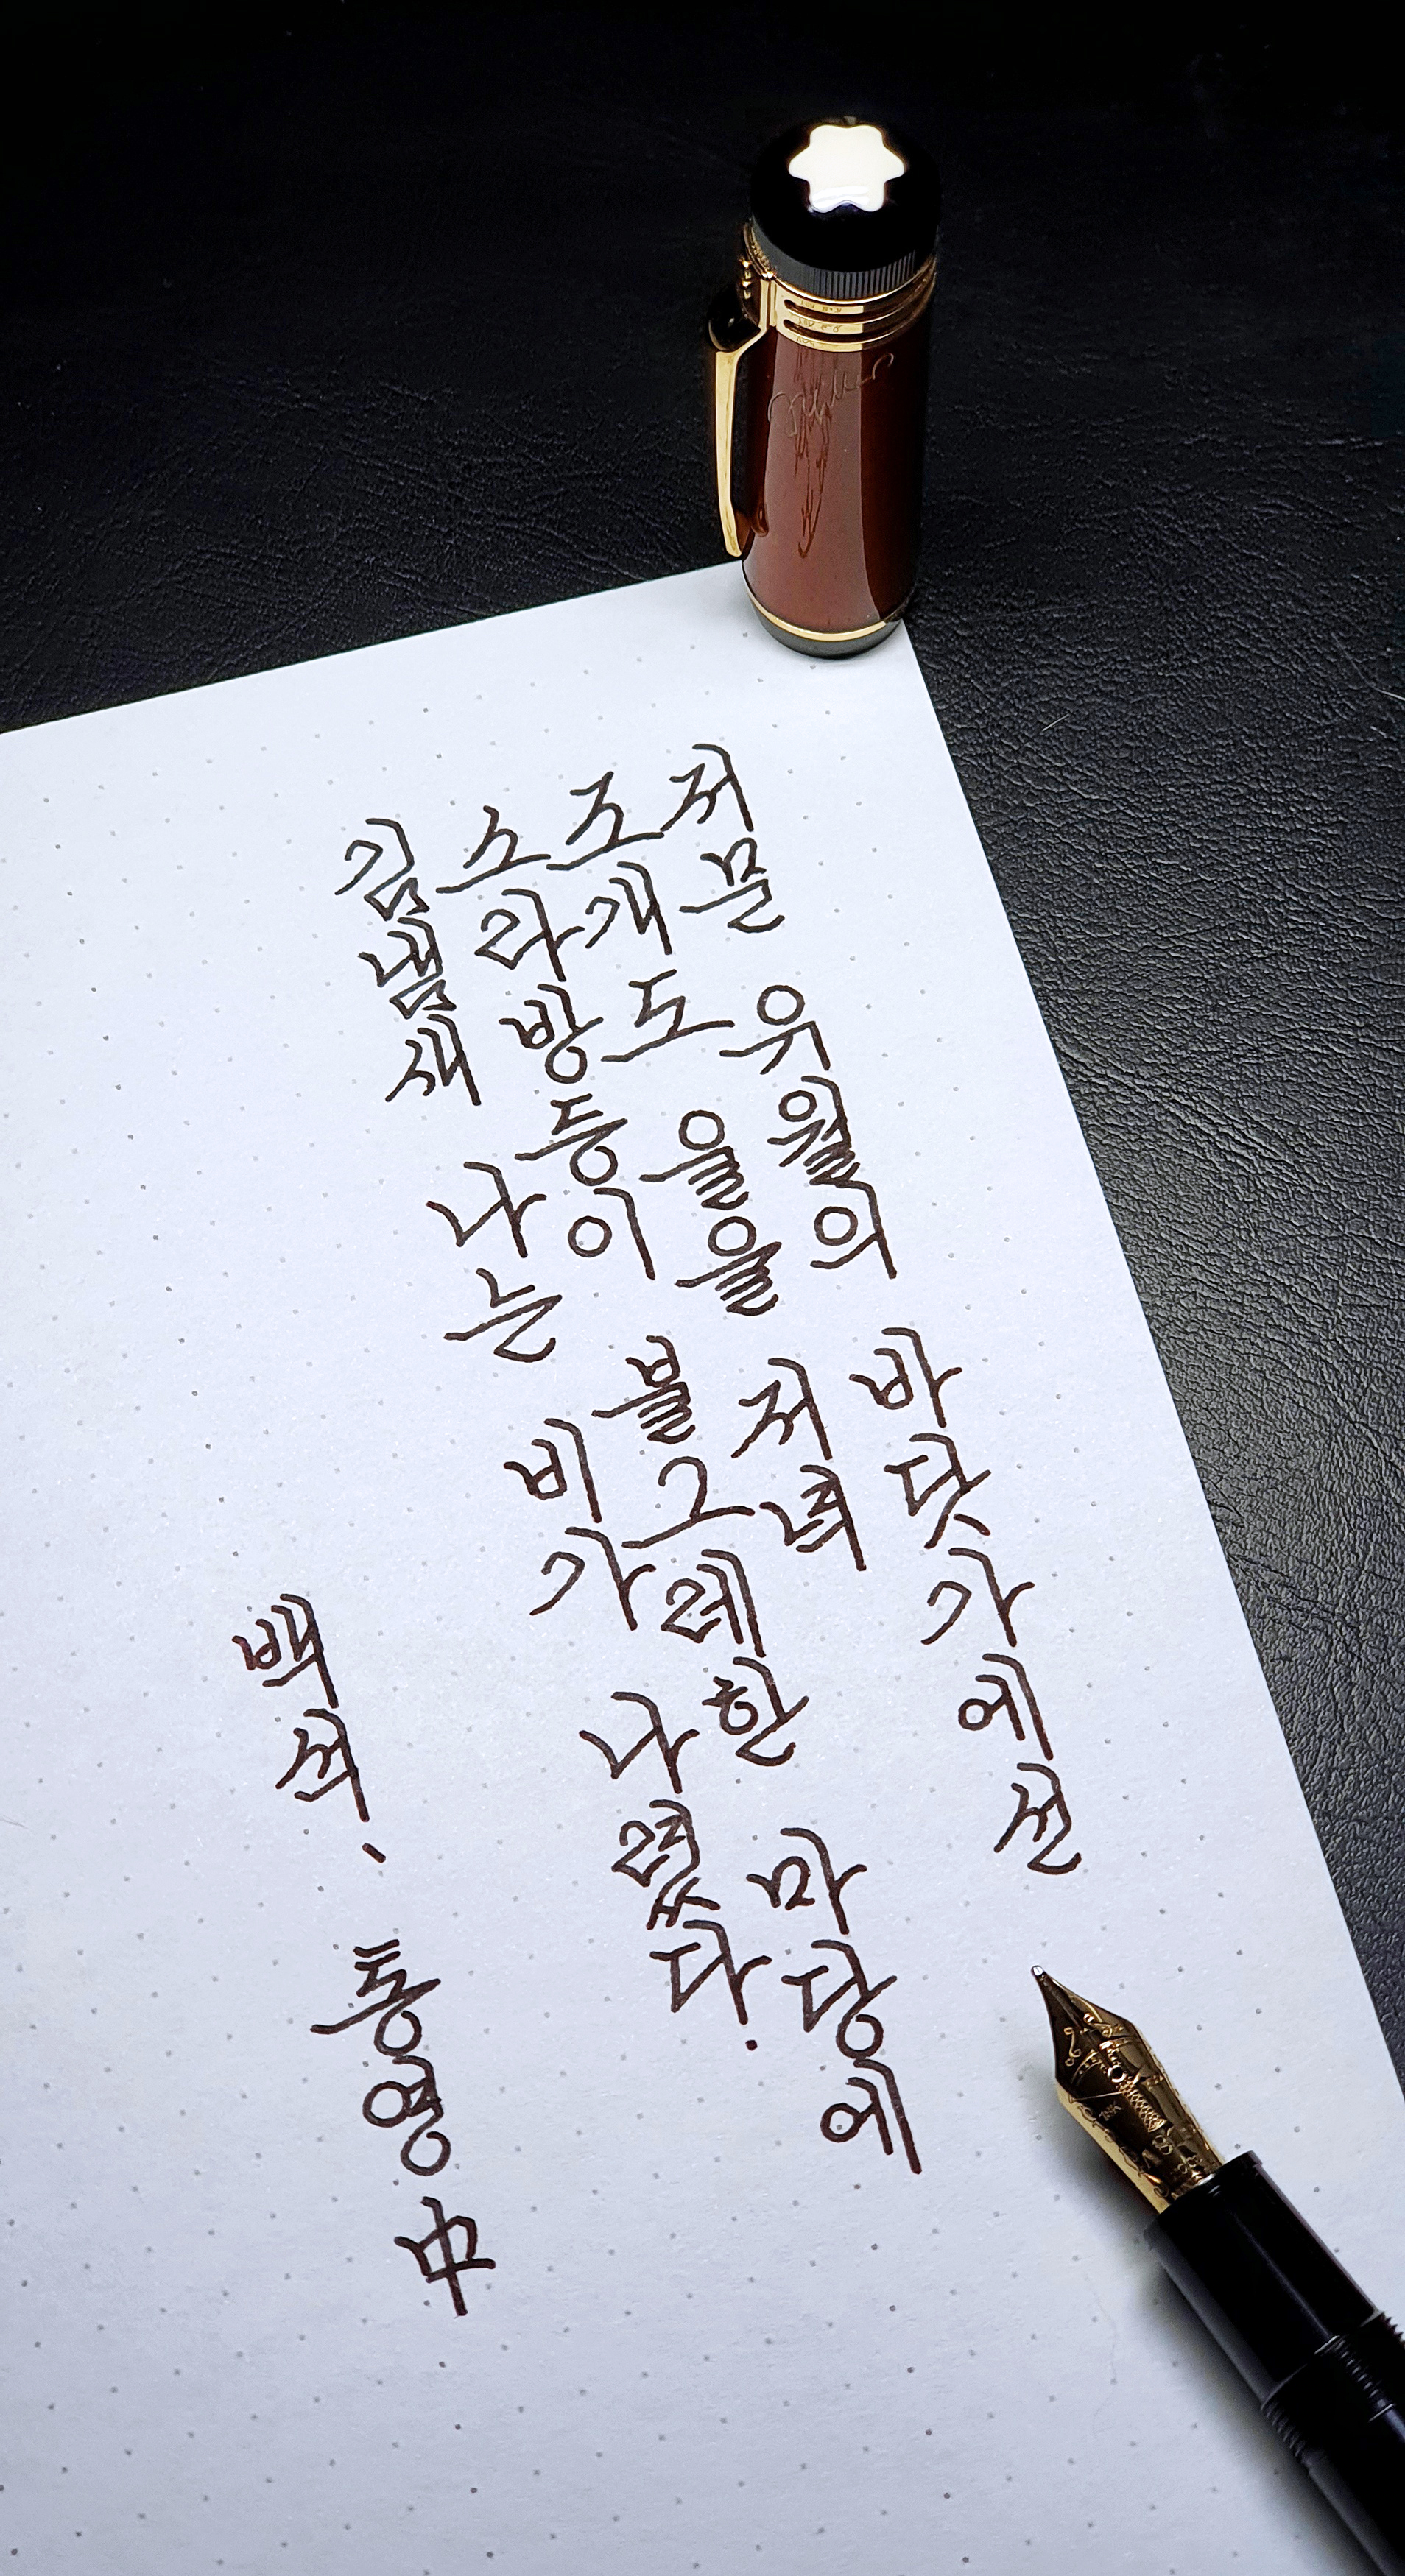 저문 유월의 바닷가에선
조개도 울을 저녁
소라방등이 불그레한 마당에
김냄새 나는 비가 나렸다.
백석. 통영 中